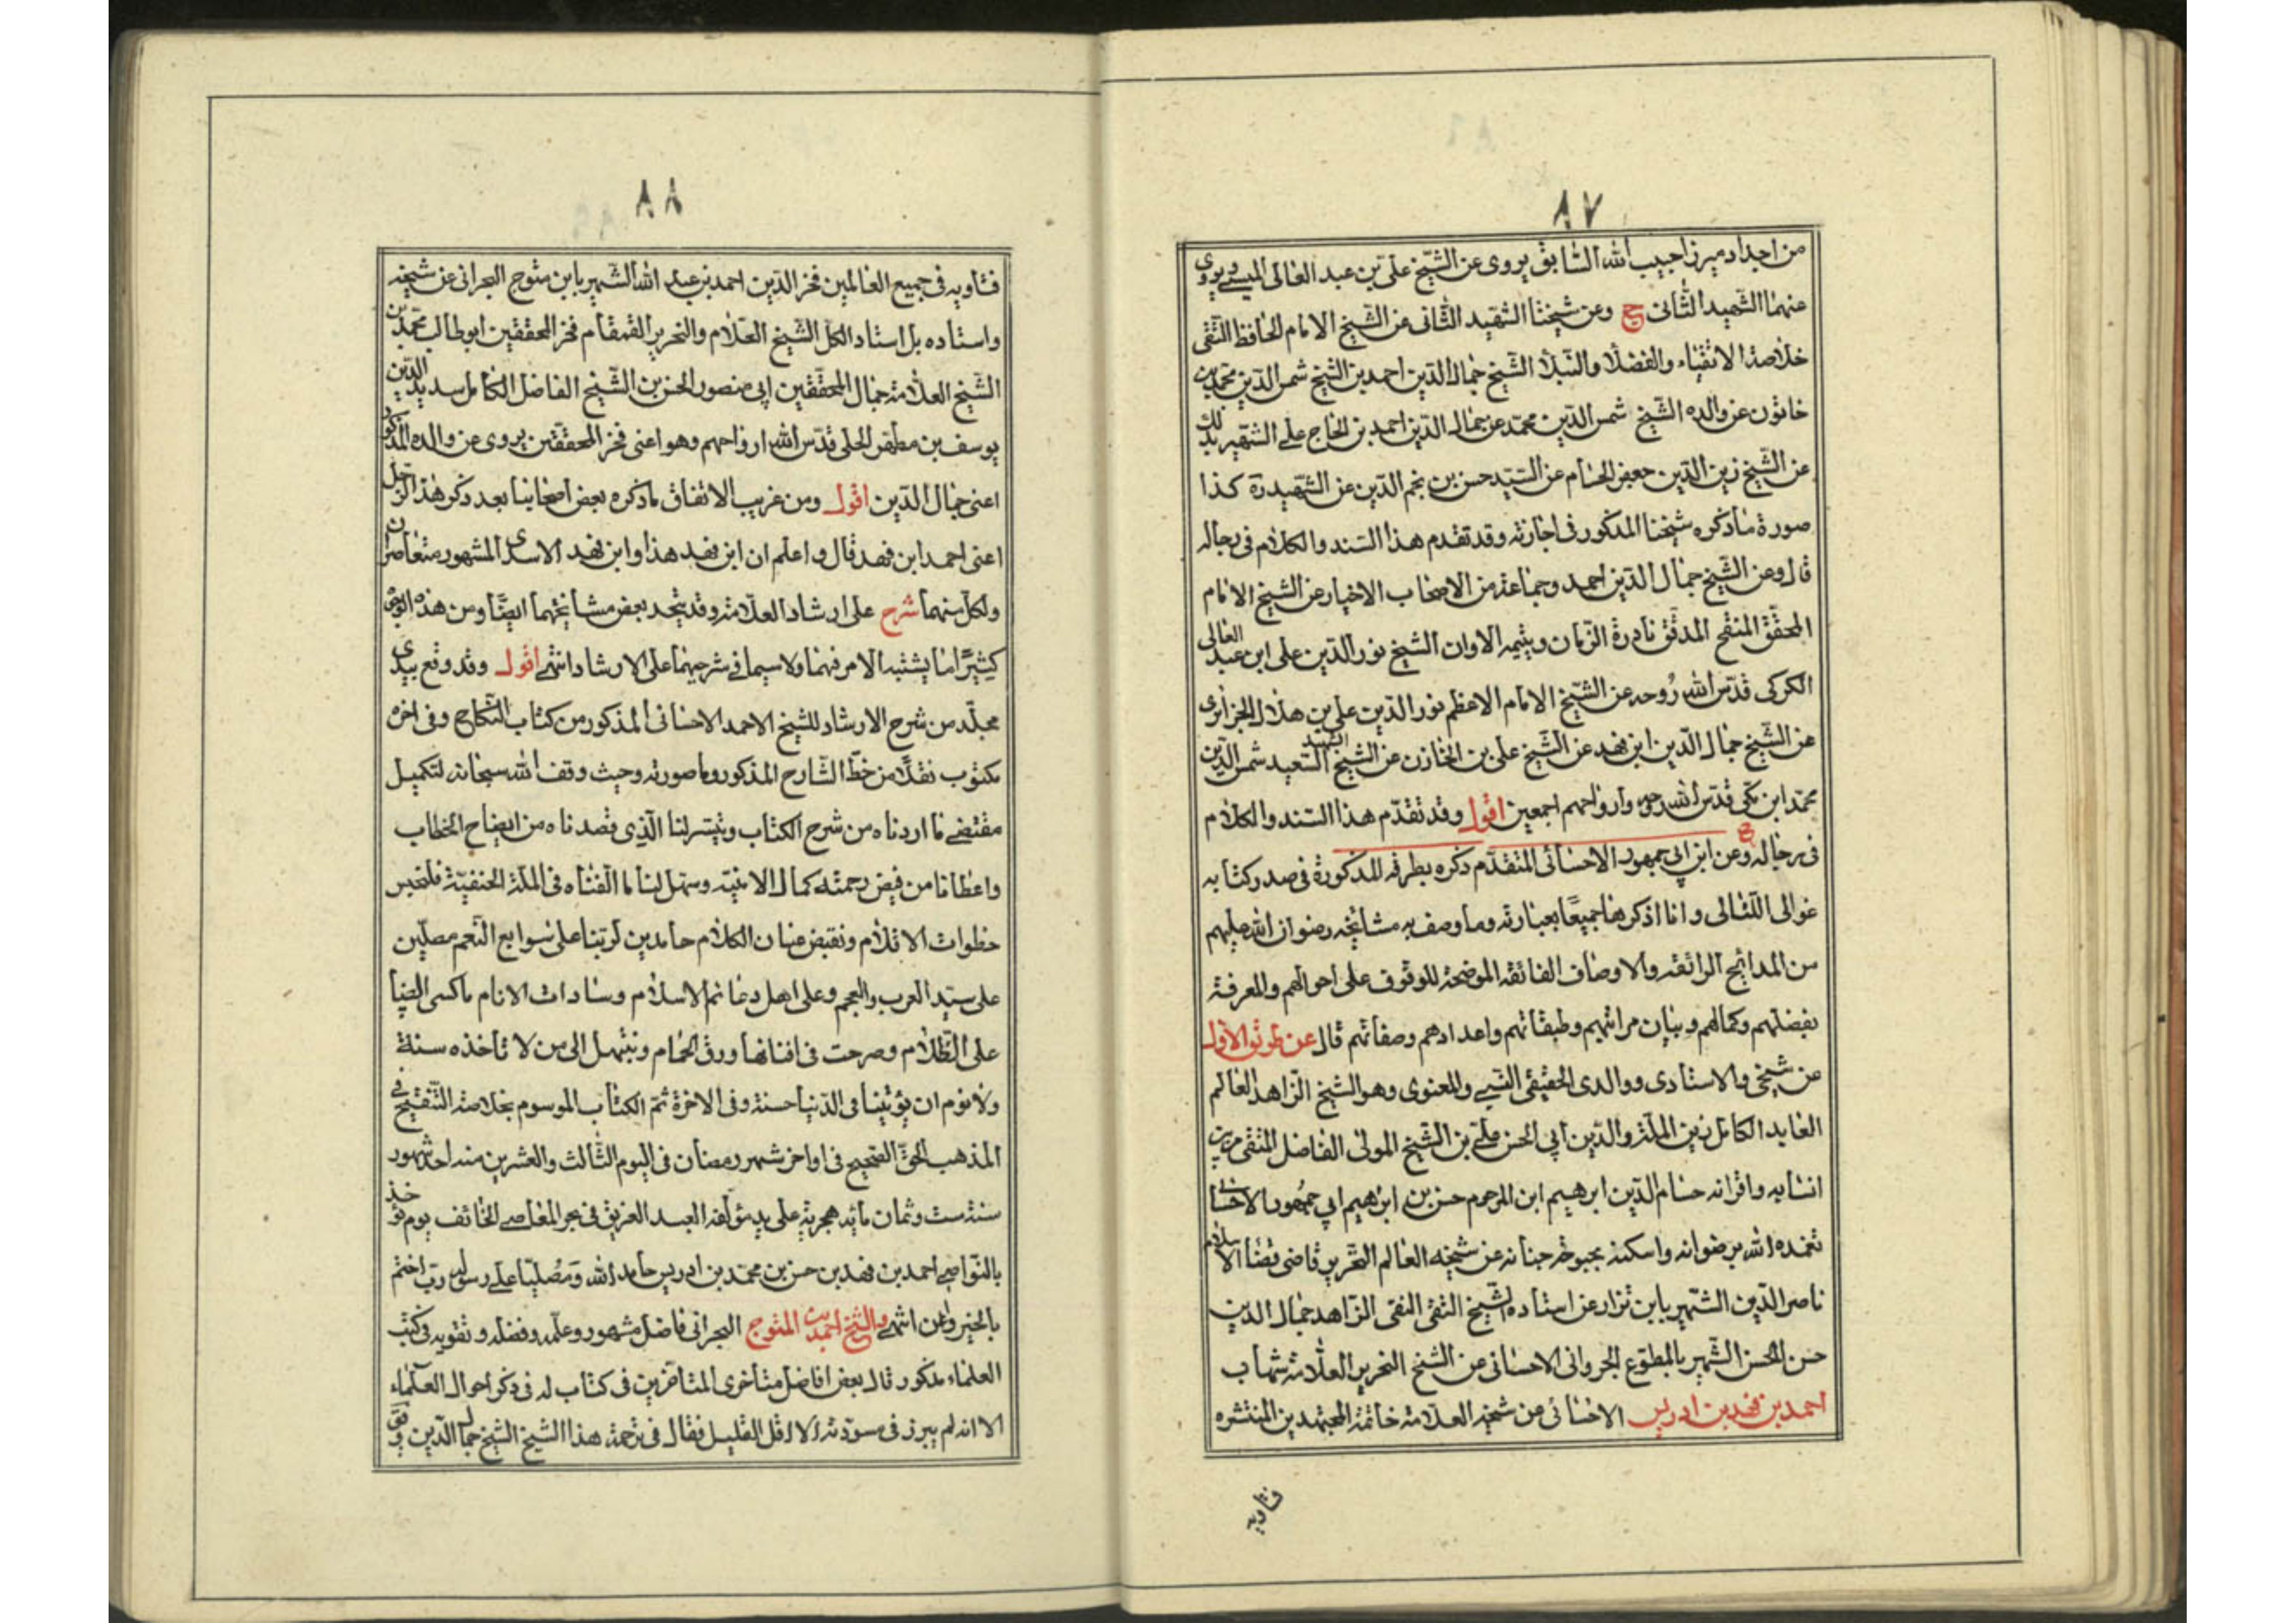 ٨٧
من اجداد ميرزا حبيب الله السابق يروى عن الشيخ على بن عبد العالى الميسى ويروى
عنهما الشهيد الثانى ح وعن شيخنا الشهيد الثانى عن الشيخ الامام الحافظ التقى
خلاصة الاتقياء والفضلا والنبلا الشيخ جمال الدين احمد بن الشيخ شمس الدين محمد بن
خاتون عن والده الشيخ شمس الدين محمد عن جمال الدين احمد بن الحاج على الشهير بذلك
عن الشيخ زين الدين جعفر الحسام عن السيد حسن بن نجم الدين عن الشهيد ره كذا
صورة ما ذكره شيخنا المذكور فى اجازته وقد تقدم هذا السند والكلام فى رجاله
قال وعن الشيخ جمال الدين احمد وجماعة من الاصحاب الاخيار عن الشيخ الامام
المحقق المنقح المدقق نادرة الزمان ويتيمة الاوان الشيخ نور الدين على ابن عبد العالى
الكركى قدس الله روحه عن الشيخ الامام الاعظم نور الدين على بن هلال الجزائرى
عن الشيخ جمال الدين ابن فهد عن الشيخ على بن الخازن عن الشيخ الشهيد السعيد شمس الدين
محمد ابن مكى قدس الله روحه وارواحهم اجمعين اقول وقد تقدم هذا السند والكلام
فى رجاله ح وعن ابن ابى جمهور الاحسائى المتقدم ذكره بطرقه المذكورة فى صدر كتابه
غوالى اللئالى وانا اذكرها جميعا بعبارته وما وصف به مشائخه رضوان الله عليهم
من المدائح الرائقة والاوصاف الفائقة الموضحة للوقوف على احوالهم والمعرفة
بفضلهم وكمالهم وبيان مراتبهم وطبقاتهم واعدادهم وصفاتهم قال عن طرق الاول
عن شيخى والاستادى ووالدى الحقيقى النسبى والمعنوى وهو الشيخ الزاهد العالم
العابد الكامل زين الملة والدين ابى الحسن على بن الشيخ المولى الفاضل المتقى من بين
انسابه واقرانه حسام الدين ابرهيم ابن المرحوم حسن بن ابرهيم ابى جمهور الاحسائى
تغمده الله برضوانه واسكنه بحبوحة جنانه عن شيخه العالم النحرير قاضى قضاة الاسلام
ناصر الدين الشهير بابن نزار عن استاده الشيخ التقى النقى الزاهد جمال الدين
حسن الحسن الشهير بالمطوع الجروانى الاحسائى عن الشيخ النحرير العلامة شهاب
احمد بن فهد بن ادريس الاحسائى عن شيخه العلامة خاتمة المجتهدين المنتشره
فتاويه
٨٨
فتاويه فى جميع العالمين فخر الدين احمد بن عبد الله الشهير بابن متوج البحرانى عن شيخه
واستاده بل استاد الكل الشيخ العلام والنحرير القمقام فخر المحققين ابو طالب محمد بن
الشيخ العلامة جمال المحققين ابى منصور الحسن بن الشيخ الفاضل الكامل سديد الدين
يوسف بن مطهر الحلى قدس الله ارواحهم وهو اعنى فخر المحققين يروى عن والده المذكور
اعنى جمال الدين اقول ومن غريب الاتفاق ما ذكره بعض اصحابنا بعد ذكر هذا الرجل
اعنى احمد ابن فهد قال واعلم ان ابن فهد هذا وابن فهد الاسدى المشهور متعاصران
ولكل منهما شرح على ارشاد العلامة وقد يتحد بعض مشائخهما ايضا ومن هذه الوجوه
كثيرا ما يشتبه الامر فيهما ولا سيما فى شرحيهما على الارشاد انتهى اقول وقد وقع بيدى
مجلد من شرح الارشاد للشيخ الاحمد الاحسائى المذكور من كتاب النكاح وفى اخره
مكتوب نقلا من خط الشارح المذكور وما صورته وحيث وقف الله سبحانه لتكميل
مقتضى ما اردناه من شرح الكتاب وتيسر لنا الذى قصدناه من ايضاح الخطاب
واعطانا من فيض رحمته كمال الامنية وسهل لنا ما الفناه فى الملة الحنفية فلنحبس
خطوات الاقلام ونقبض عنان الكلام حامدين لربنا على سوابع النعم مصلين
على سيد العرب والعجم وعلى اهل دعائم الاسلام وسادات الانام ما كسى الضيا
على الظلام وصرحت فى افنانها ورق الحمام ونبتهل الى من لا تأخذه سنة
ولا نوم ان يؤتينا فى الدنيا حسنة وفى الاخرة ثم الكتاب الموسوم بخلاصة التنقيح فى
المذهب الحق الصحيح فى اواخر شهر رمضان فى اليوم الثالث والعشرين منه احد شهور
سنة ست وثمان مائه هجرية على يد مؤلفه العبد الغريق فى بحر المعاصى الخائف يوم يؤخذ
بالنواصى احمد بن فهد بن حسن بن محمد بن ادريس حامدا لله ومصليا على رسوله رب اختم
بالخير واعن انتهى والشيخ احمد بن المتوج البحرانى فاضل مشهور وعلمه وفضله وتقويه فى كتب
العلماء مذكور قال بعض افاضل متأخرى المتاخرين فى كتاب له فى ذكر احوال العلماء
الا انه لم يبرز فى مسودته الا اقل القليل فقال فى ترجمة هذا الشيخ الشيخ جمال الدين